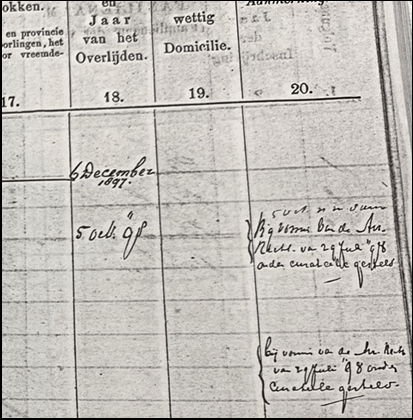 okken.
en provincie
oorlingen, het
or vreemde-
17.
en
Jaar
van het
Overlijden.
18.
wettig
Domicilie.
19.
Aanmerking
20.
6 December
1897.
5 Oct. "98
bij vonnis van de Arr.
Rechtb. van 29 Juli "98
onder curateele gesteld
bij vonnis van de Arr. Rechtb
van 29 Juli "98 onder
curateele gesteld